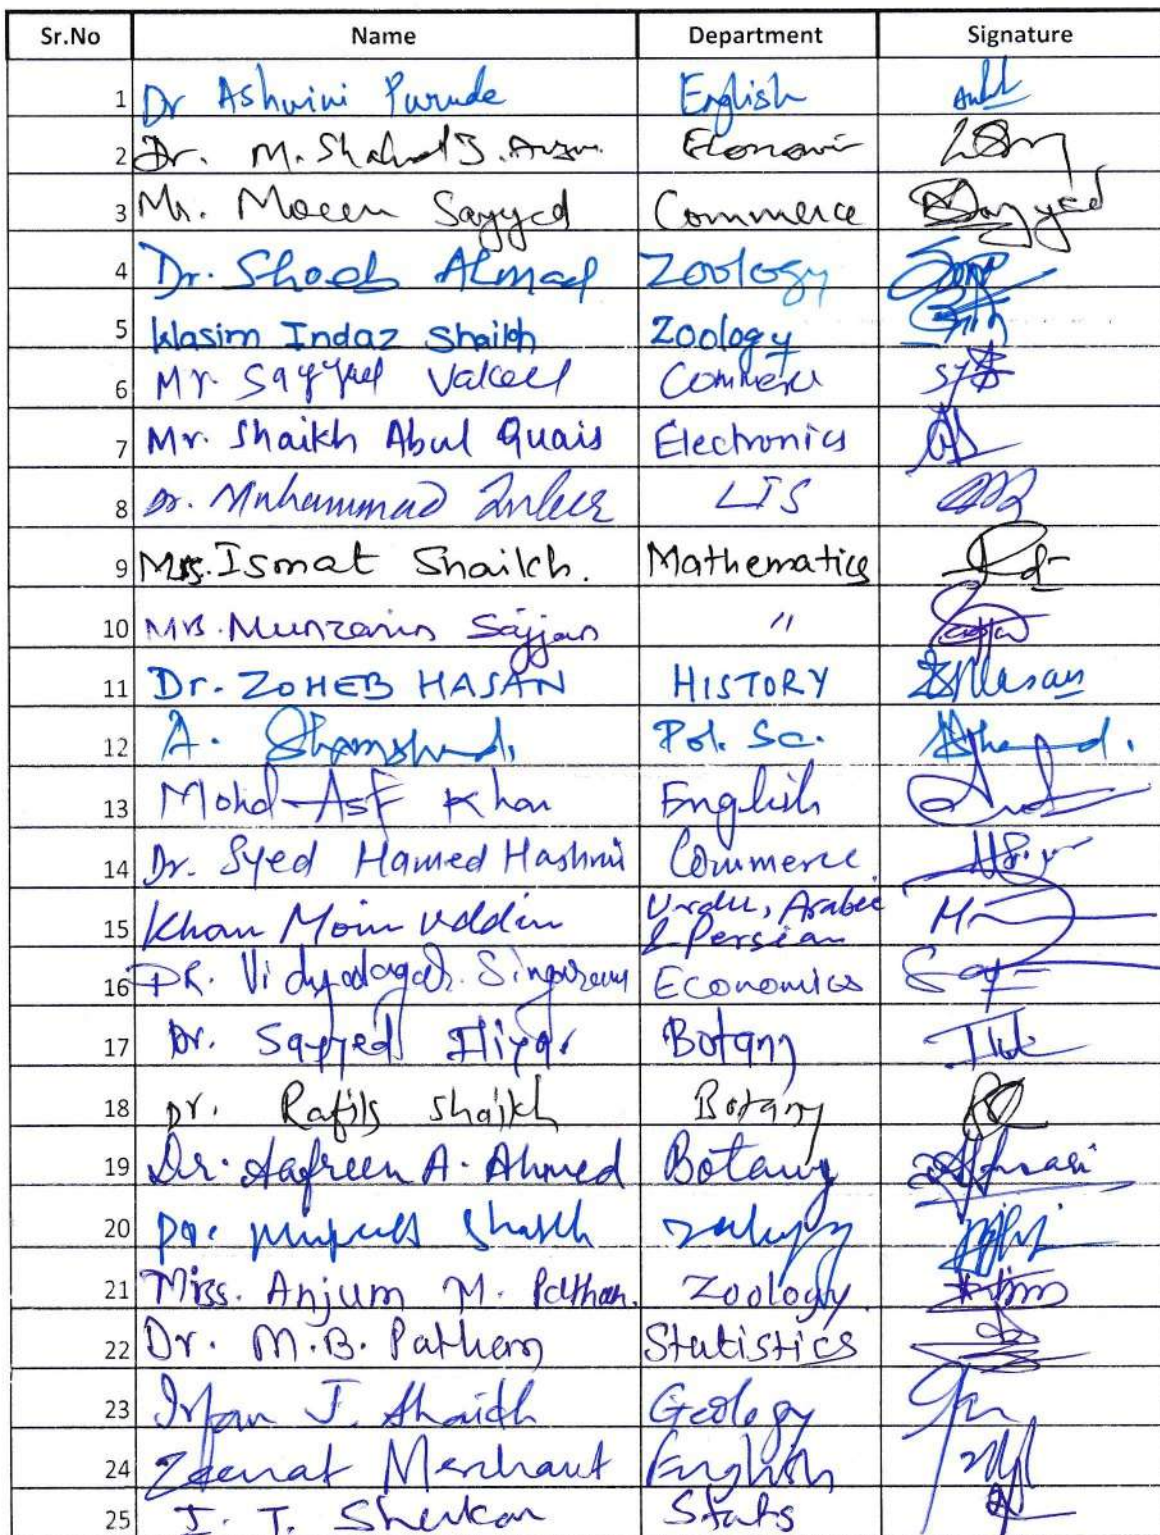 Sr.No Name Department Signature
1 Dr Ashwini Purude English
2 Dr. M. Shahid J. Economi
3 Mr. Moeen Sayyed Commerce Sayyed
4 Dr. Shoeb Ahmad Zoology
5 Wasim Indaz Shaikh Zoology
6 Mr Sayyed Vakeel Commerce
7 Mr. Shaikh Abul Quais Electronics
8 Dr. Muhammad LIS
9 Mrs. Ismat Shaikh. Mathematics
10 Mrs. Munzarin Sajjan "
11 Dr. ZOHEB HASAN HISTORY
12 A. Shamshad. Pol. Sc.
13 Mohd Asf Khan English
14 Dr. Syed Hamed Hashmi Commerce
15 Khan Moin Uddin Urdu, Arabic
& Persian
16 DR. Economics
17 Dr. Sayyed Iliyas Botany
18 Dr. Rafiq Shaikh Botany
19 Dr. Aafreen A. Ahmed Botany
20 Shaikh
21 Miss. Anjum M. Pathan. Zoology
22 Dr. M.B. Pathan Statistics
23 Irfan J. Shaikh Geology
24 Zeenat Merchant English
25 I. T. Sherkar Stats